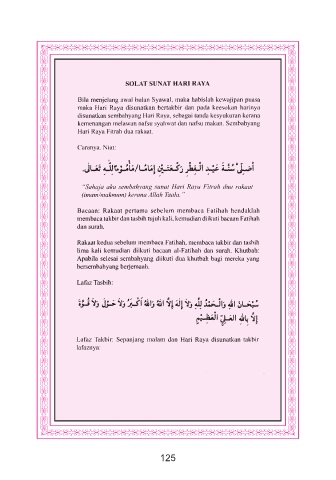 SOLAT SUNAT HARI RAYA
Bila menjelang awal bulan Syawal, maka habislah kewajipan puasa
maka Hari Raya disunatkan bertakbir dan pada keesokan harinya
disunatkan sembahyang Hari Raya, sebagai tanda kesyukuran kerana
kemenangan melawan nafsu syahwat dan nafsu makan. Sembahyang
Hari Raya Fitrah dua rakaat.
Caranya. Niat:
أُصَلِّيْ سُنَّةَ عَيْدِ الْفِطْرِ رَكْعَتَيْنِ إِمَامًا/مَأْمُوْمًا لِلّٰهِ تَعَالَى.
"Sahaja aku sembahyang sunat Hari Raya Fitrah dua rakaat
(imam/makmum) kerana Allah Taala."
Bacaan: Rakaat pertama sebelum membaca Fatihah hendaklah
membaca takbir dan tasbih tujuh kali, kemudian diikuti bacaan Fatihah
dan surah.
Rakaat kedua sebelum membaca Fatihah, membaca takbir dan tasbih
lima kali kemudian diikuti bacaan al-Fatihah dan surah. Khutbah:
Apabila selesai sembahyang diikuti dua khutbah bagi mereka yang
bersembahyang berjemaah.
Lafaz Tasbih:
سُبْحَانَ اللهِ وَالْحَمْدُ لِلّٰهِ وَلاَ إِلَهَ إِلاَّ اللهُ وَاللهُ أَكْبَرُ وَلاَ حَوْلَ وَلاَ قُوَّةَ
إِلاَّ بِاللهِ الْعَلِيِّ الْعَظِيْمِ
Lafaz Takbir: Sepanjang malam dan Hari Raya disunatkan takbir
lafaznya:
125